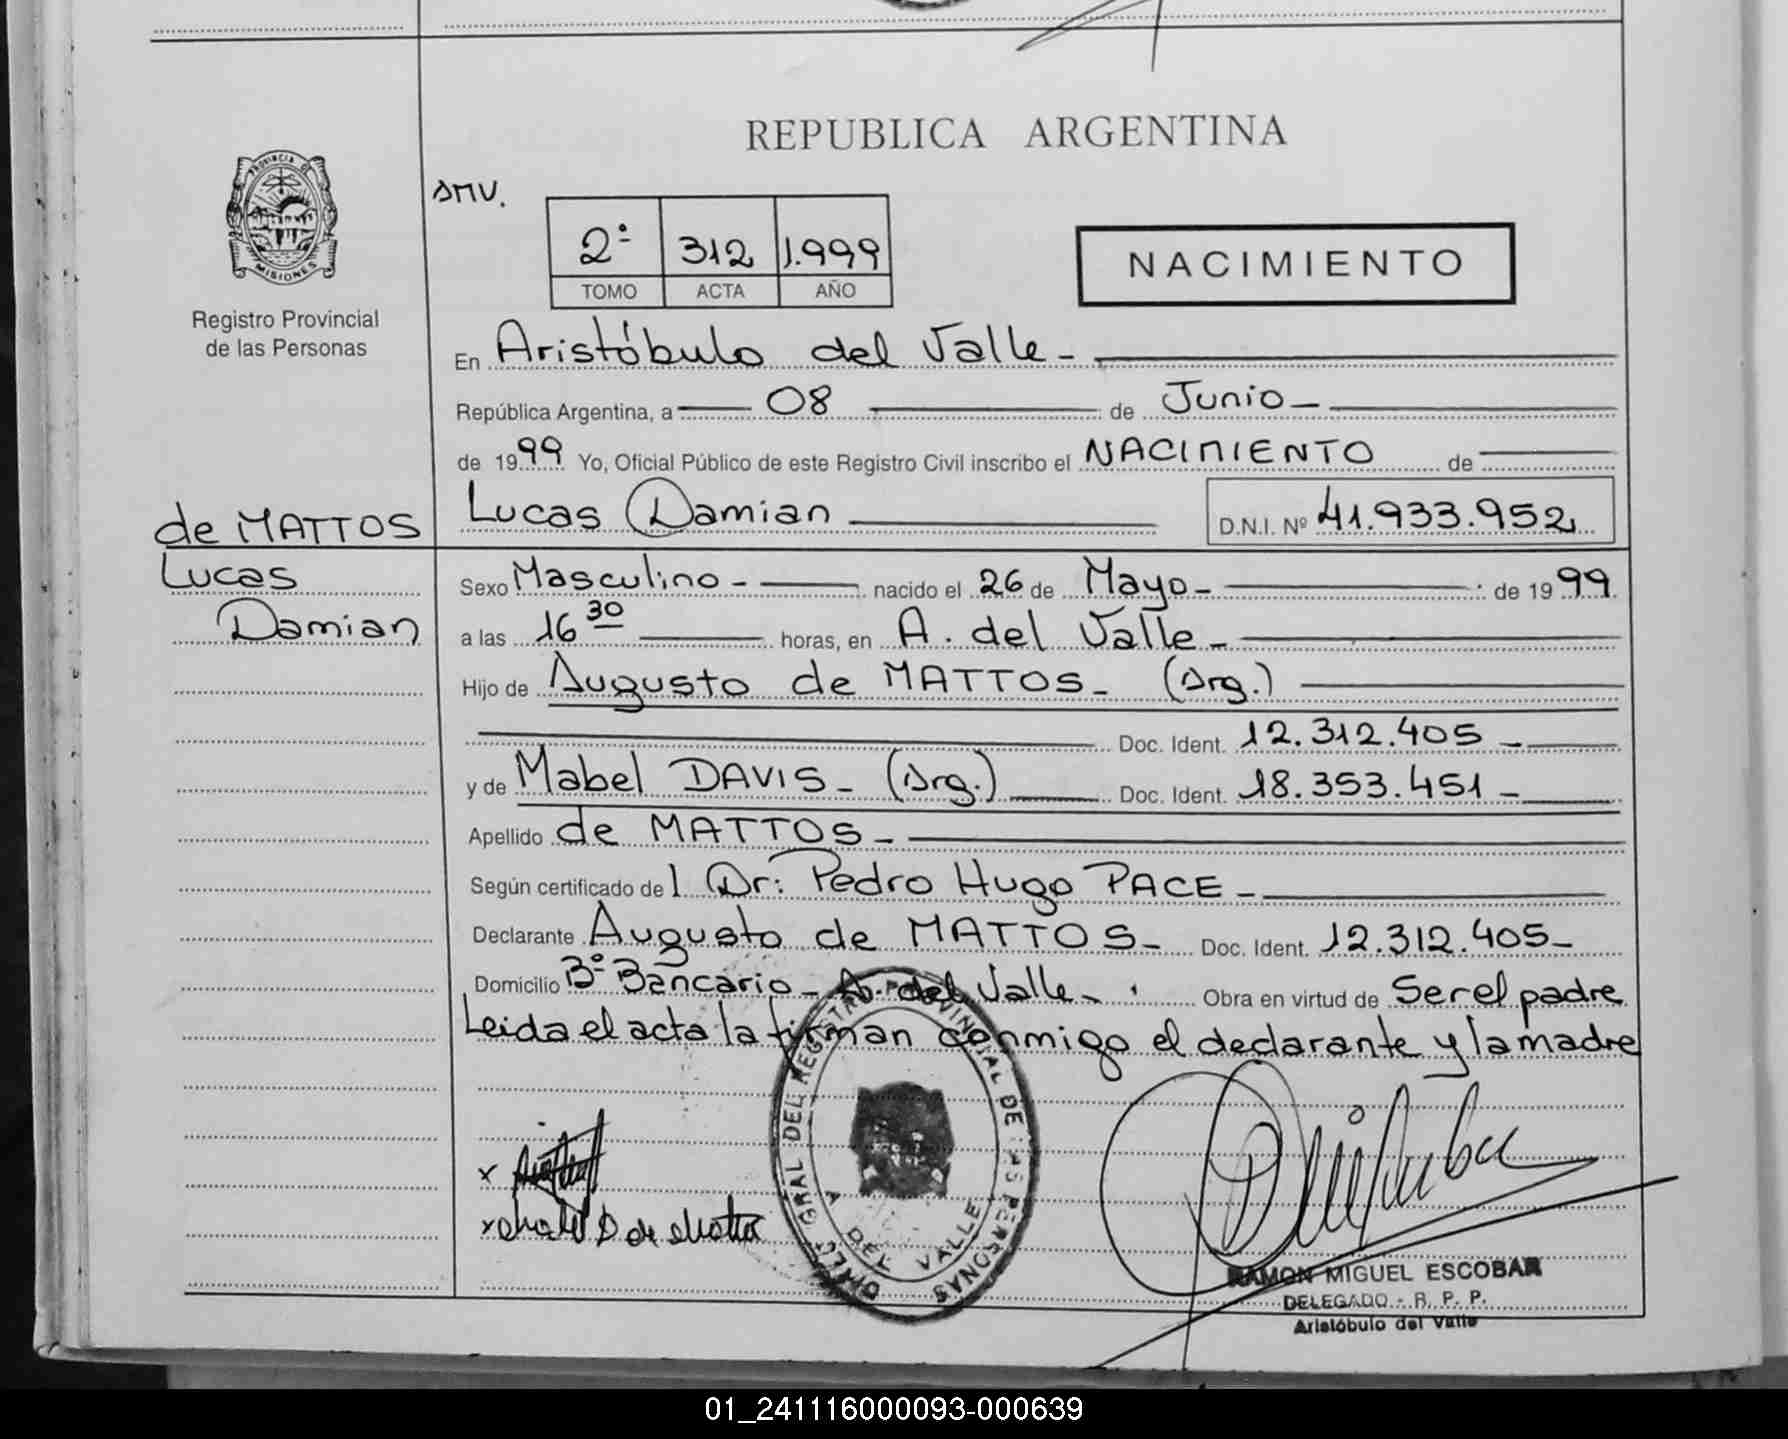 REPUBLICA ARGENTINA
PROVINCIA DE
MISIONES
Registro Provincial
de las Personas
AMV.
2º 312 1.999
TOMO ACTA AÑO
NACIMIENTO
En Aristóbulo del Valle -
República Argentina, a 08 de Junio -
de 1999 Yo, Oficial Público de este Registro Civil inscribo el NACIMIENTO de
Lucas Damian D.N.I. Nº 41.933.952
de MATTOS
Lucas
Damian
Sexo Masculino - nacido el 26 de Mayo - de 1999
a las 16 30 horas, en A. del Valle -
Hijo de Augusto de MATTOS - (Arg.)
Doc. Ident. 12.312.405 -
y de Mabel DAVIS - (Arg.) Doc. Ident. 18.353.451 -
Apellido de MATTOS -
Según certificado del Dr: Pedro Hugo PACE -
Declarante Augusto de MATTOS - Doc. Ident. 12.312.405 -
Domicilio Bº Bancario - A. del Valle - Obra en virtud de Ser el padre
Leida el acta la firman conmigo el declarante y la madre
GRAL DEL REGISTRO PROVINCIAL DE LAS PERSONAS
A DEL VALLE
x
x D de
RAMON MIGUEL ESCOBAR
DELEGADO - R. P. P.
Aristóbulo del Valle
01_241116000093-000639